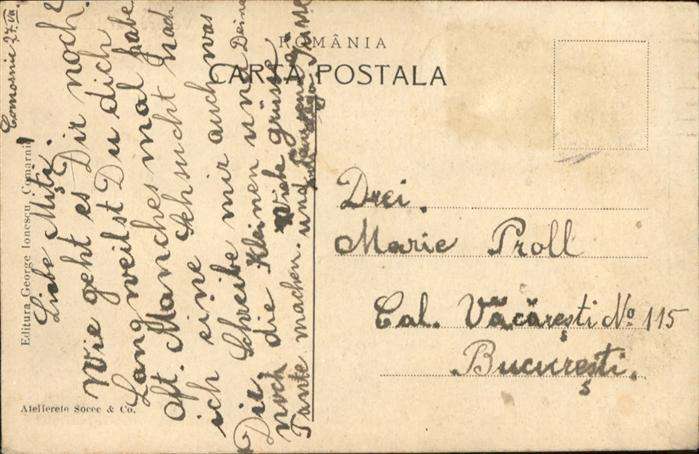 ROMÂNIA
CARTA POSTALA
27. VII.
Liebe Mitzi!
Wie geht es Dir noch?
Langweilst Du dich
oft. Manchesmal habe
ich eine Sehnsucht nach
Dir. Schreibe mir auch was
noch die Kleinen und Deine
Tante machen. Viele Grüsse
und
Drei.
Marie Proll
Cal. Văcărești No 115
București.
Editura George Ionescu, Comarnic
Atelierele Socec & Co.